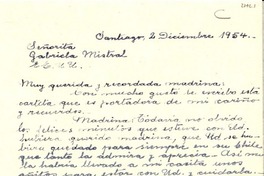 Santiago 2 Diciembre 1954.
Señorita
Gabriela Mistral
EE. UU.
Muy querida y recordada madrina.
Con mucho gusto le escribo esta
cartita que es portadora de mi cariño
y recuerdos.
Madrina: Todavía no olvido
los felices minutos que estuve con Ud.
querida madrina, que Ud. se hu-
biera quedado para siempre en su Chile
que tanto la admira y aprecia. Así me
la habría llevado a mi casita unos
para estar con Ud. y cuidarla.